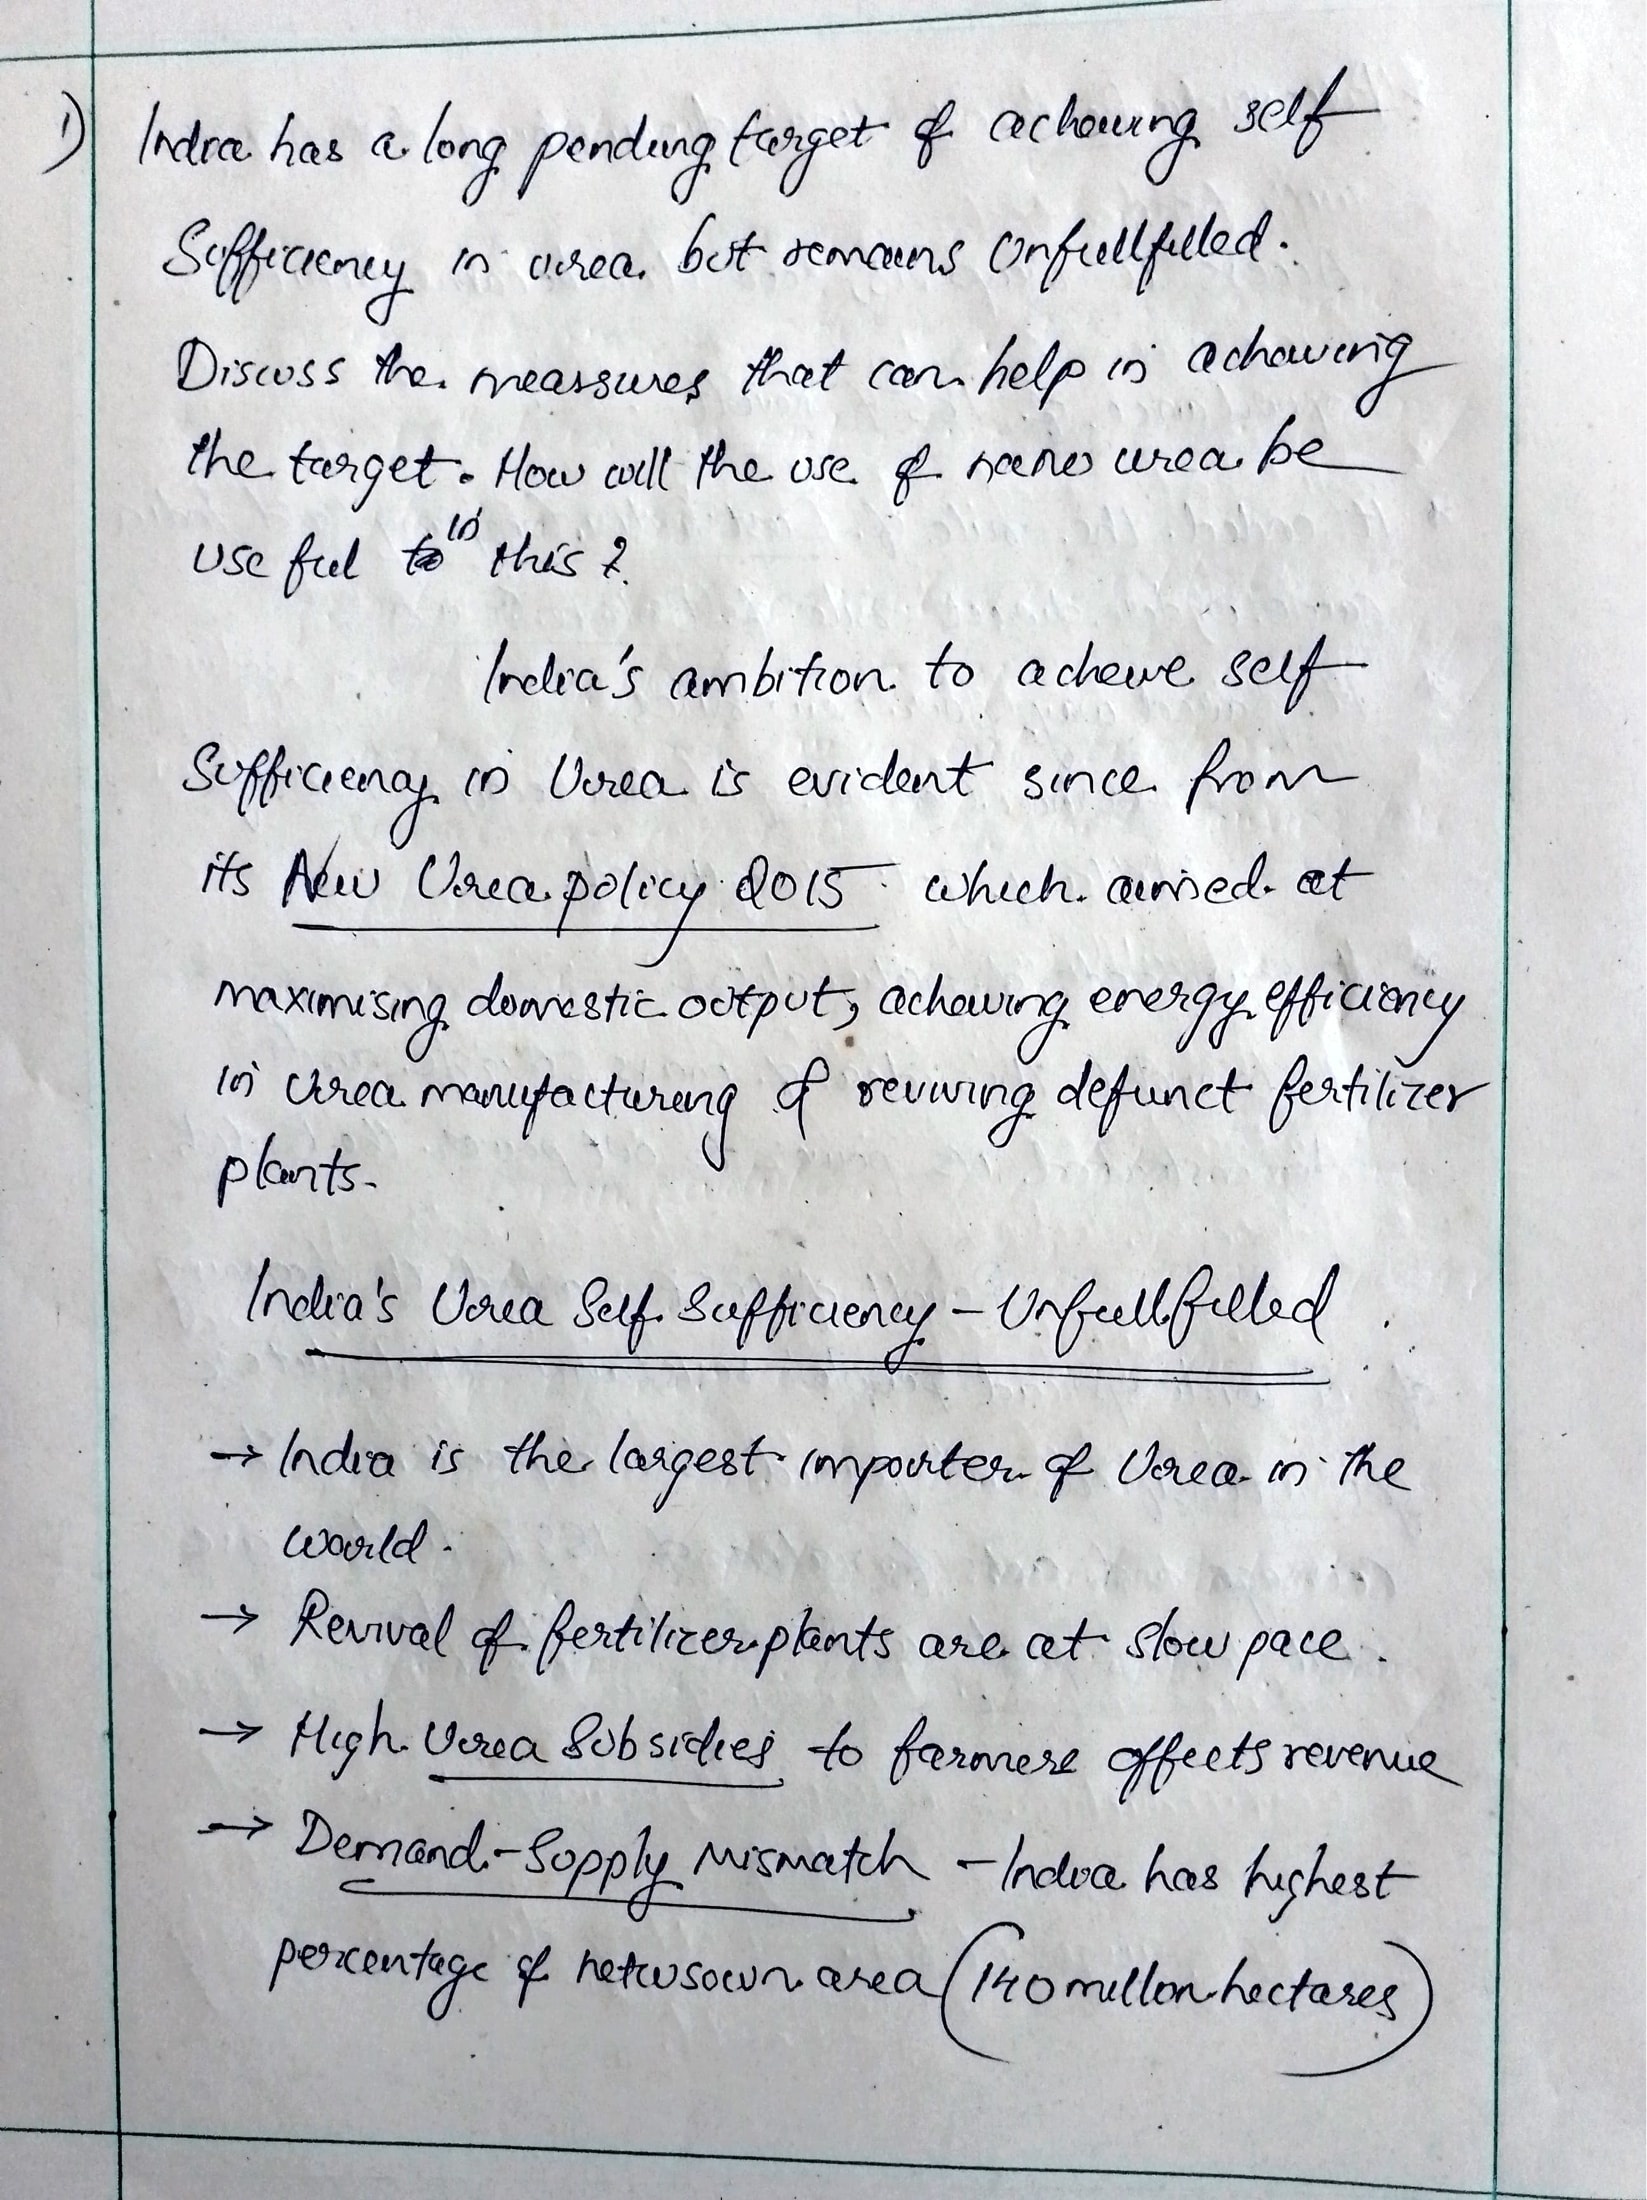 1) India has a long pending target of acheiving self
Sufficiency in urea but remains Unfullfilled.
Discuss the meassures that can help in acheiving
the target. How will the use of nano urea be
useful in this?
India's ambition to acheive self
Sufficiency in Urea is evident since from
its New Urea policy 2015 which aimed at
maximising domestic output, acheiving energy efficiency
in Urea manufacturing & reviving defunct fertilizer
plants.
India's Urea Self Sufficiency - Unfullfilled
→ India is the largest importer of Urea in the
world.
→ Revival of fertilizer plants are at slow pace.
→ High Urea Subsidies to farmers affects revenue
→ Demand-Supply Mismatch - India has highest
percentage of net sown area (140 million hectares)